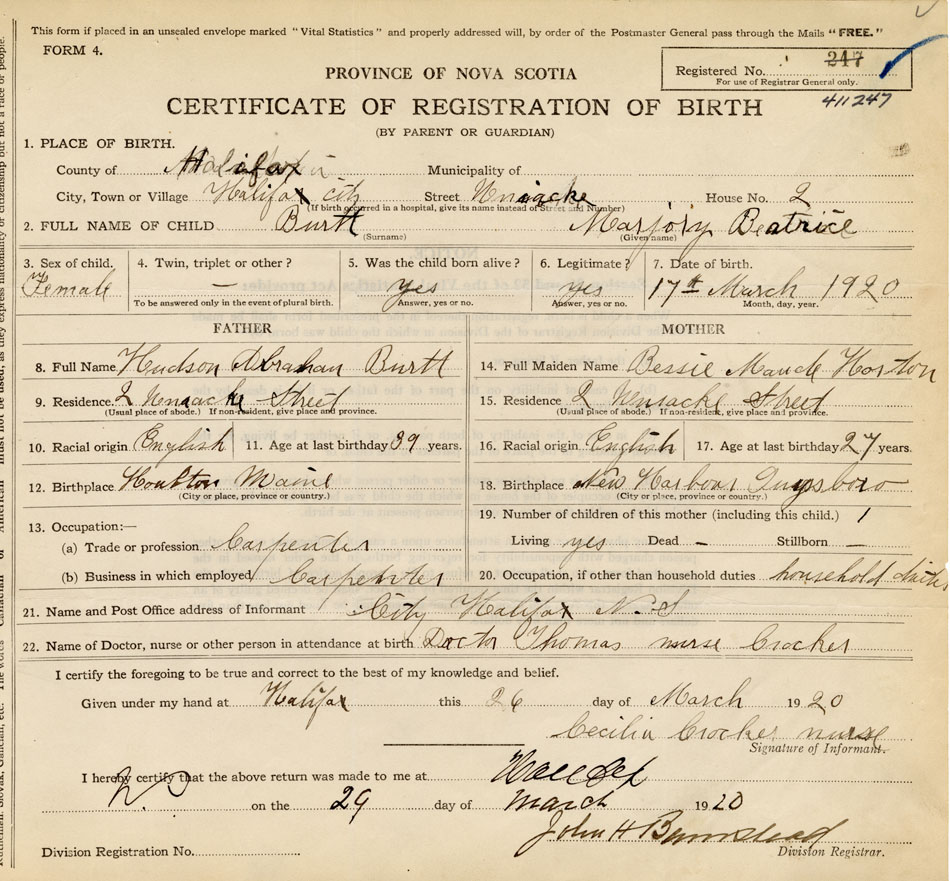 This form if placed in an unsealed envelope marked "Vital Statistics" and properly addressed will, by order of the Postmaster General pass through the Mails "FREE."
FORM 4.
PROVINCE OF NOVA SCOTIA
Registered No. 247
For use of Registrar General only.
411247
CERTIFICATE OF REGISTRATION OF BIRTH
(BY PARENT OR GUARDIAN)
1. PLACE OF BIRTH.
County of Halifax Municipality of
City, Town or Village Halifax city Street House No. 2
(If birth occurred in a hospital, give its name instead of Street and Number)
2. FULL NAME OF CHILD Burtt Marjory Beatrice
(Surname) (Given name)
3. Sex of child. 4. Twin, triplet or other? 5. Was the child born alive? 6. Legitimate? 7. Date of birth.
Female — yes yes 17th March 1920
To be answered only in the event of plural birth. Answer, yes or no. Answer, yes or no. Month, day, year.
FATHER MOTHER
8. Full Name Hudson Abrahan Burtt 14. Full Maiden Name Bessie Maude Horton
9. Residence. 2 Street 15. Residence 2 Street
(Usual place of abode.) If non-resident, give place and province. (Usual place of abode.) If non-resident, give place and province.
10. Racial origin English 11. Age at last birthday 39 years. 16. Racial origin English 17. Age at last birthday 27 years.
12. Birthplace Houlton Maine 18. Birthplace New Harbour Guysboro
(City or place, province or country.) (City or place, province or country.)
13. Occupation:— 19. Number of children of this mother (including this child.) 1
(a) Trade or profession Carpenter Living yes Dead — Stillborn —
(b) Business in which employed Carpenter 20. Occupation, if other than household duties household duties
21. Name and Post Office address of Informant City Halifax N.S
22. Name of Doctor, nurse or other person in attendance at birth Doctor Thomas nurse Crocker
I certify the foregoing to be true and correct to the best of my knowledge and belief.
Given under my hand at Halifax this 26 day of March 1920
Cecilia Crocker nurse
Signature of Informant.
I hereby certify that the above return was made to me at
on the 29 day of March 1920
John H Barnstead
Division Registration No. Division Registrar.